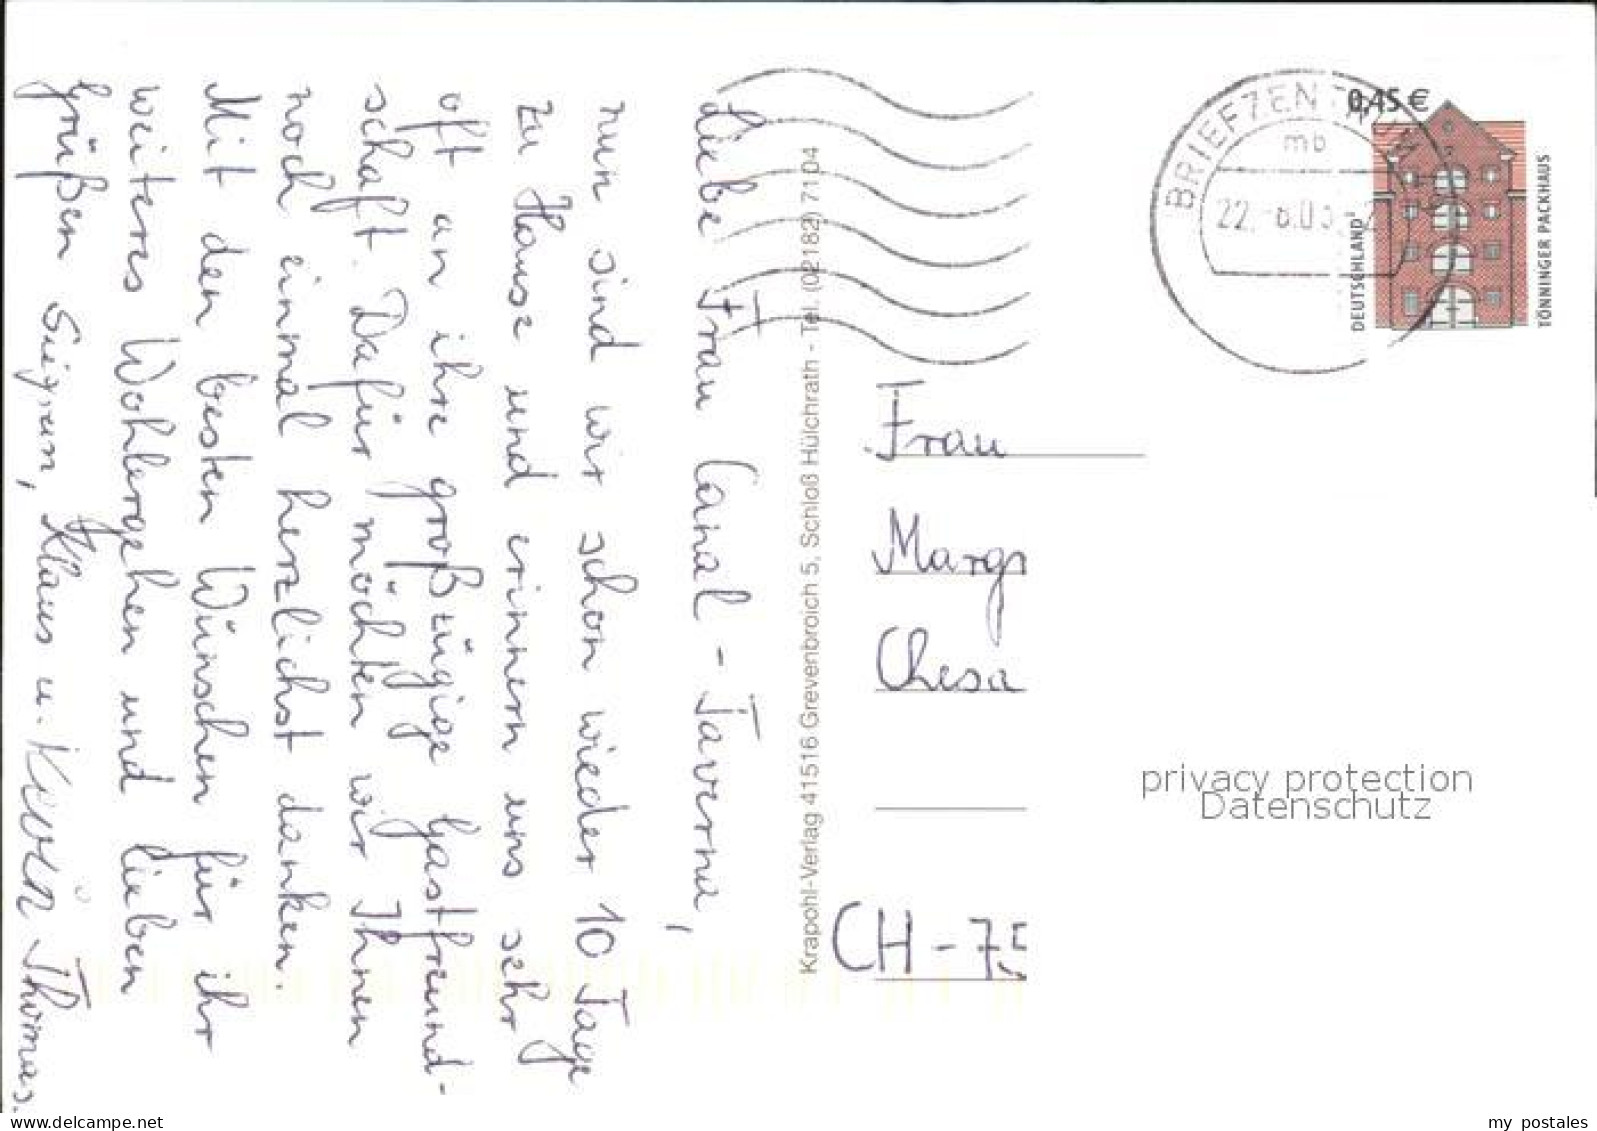 Liebe Frau Canal-Taverna,
nun sind wir schon wieder 10 Tage
zu Hause und erinnern uns sehr
oft an ihre großzügige Gastfreund-
schaft. Dafür möchten wir Ihnen
noch einmal herzlichst danken.
Mit den besten Wünschen für ihr
weiteres Wohlergehen und lieben
Grüßen Siegrun, Klaus u. Thomas.
Krapohl-Verlag 41516 Grevenbroich 5, Schloß Hülchrath - Tel. (02182) 7104
BRIEFZENTRUM
mb
22.-8.03
0,45 €
DEUTSCHLAND
TÖNNINGER PACKHAUS
Frau
Margr
Chesa
CH-75
privacy protection
Datenschutz
delcampe.net
my_postales